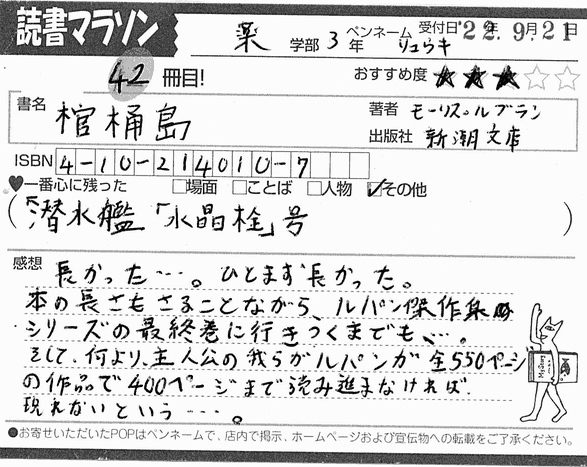 読書マラソン
薬 学部 3 年 ペンネーム リュウキ 受付日 '22年.9月.21日
42 冊目! おすすめ度 ★★★☆☆
書名 棺桶島 著者 モーリス・ルブラン
出版社 新潮文庫
ISBN 4-10-214010-7
♥一番心に残った □場面 □ことば □人物 ☑その他
(「潜水艦「水晶栓」号)
感想 長かった…。ひとまず長かった。
本の長さもさることながら、ルパン傑作集
シリーズの最終巻に行きつくまでも、…。
そして、何より、主人公の我らがルパンが全550ページ
の作品で400ページまで読み進まなければ
現れないという…。
Mystery
●お寄せいただいたPOPはペンネームで、店内で掲示、ホームページおよび宣伝物への転載をご了承ください。